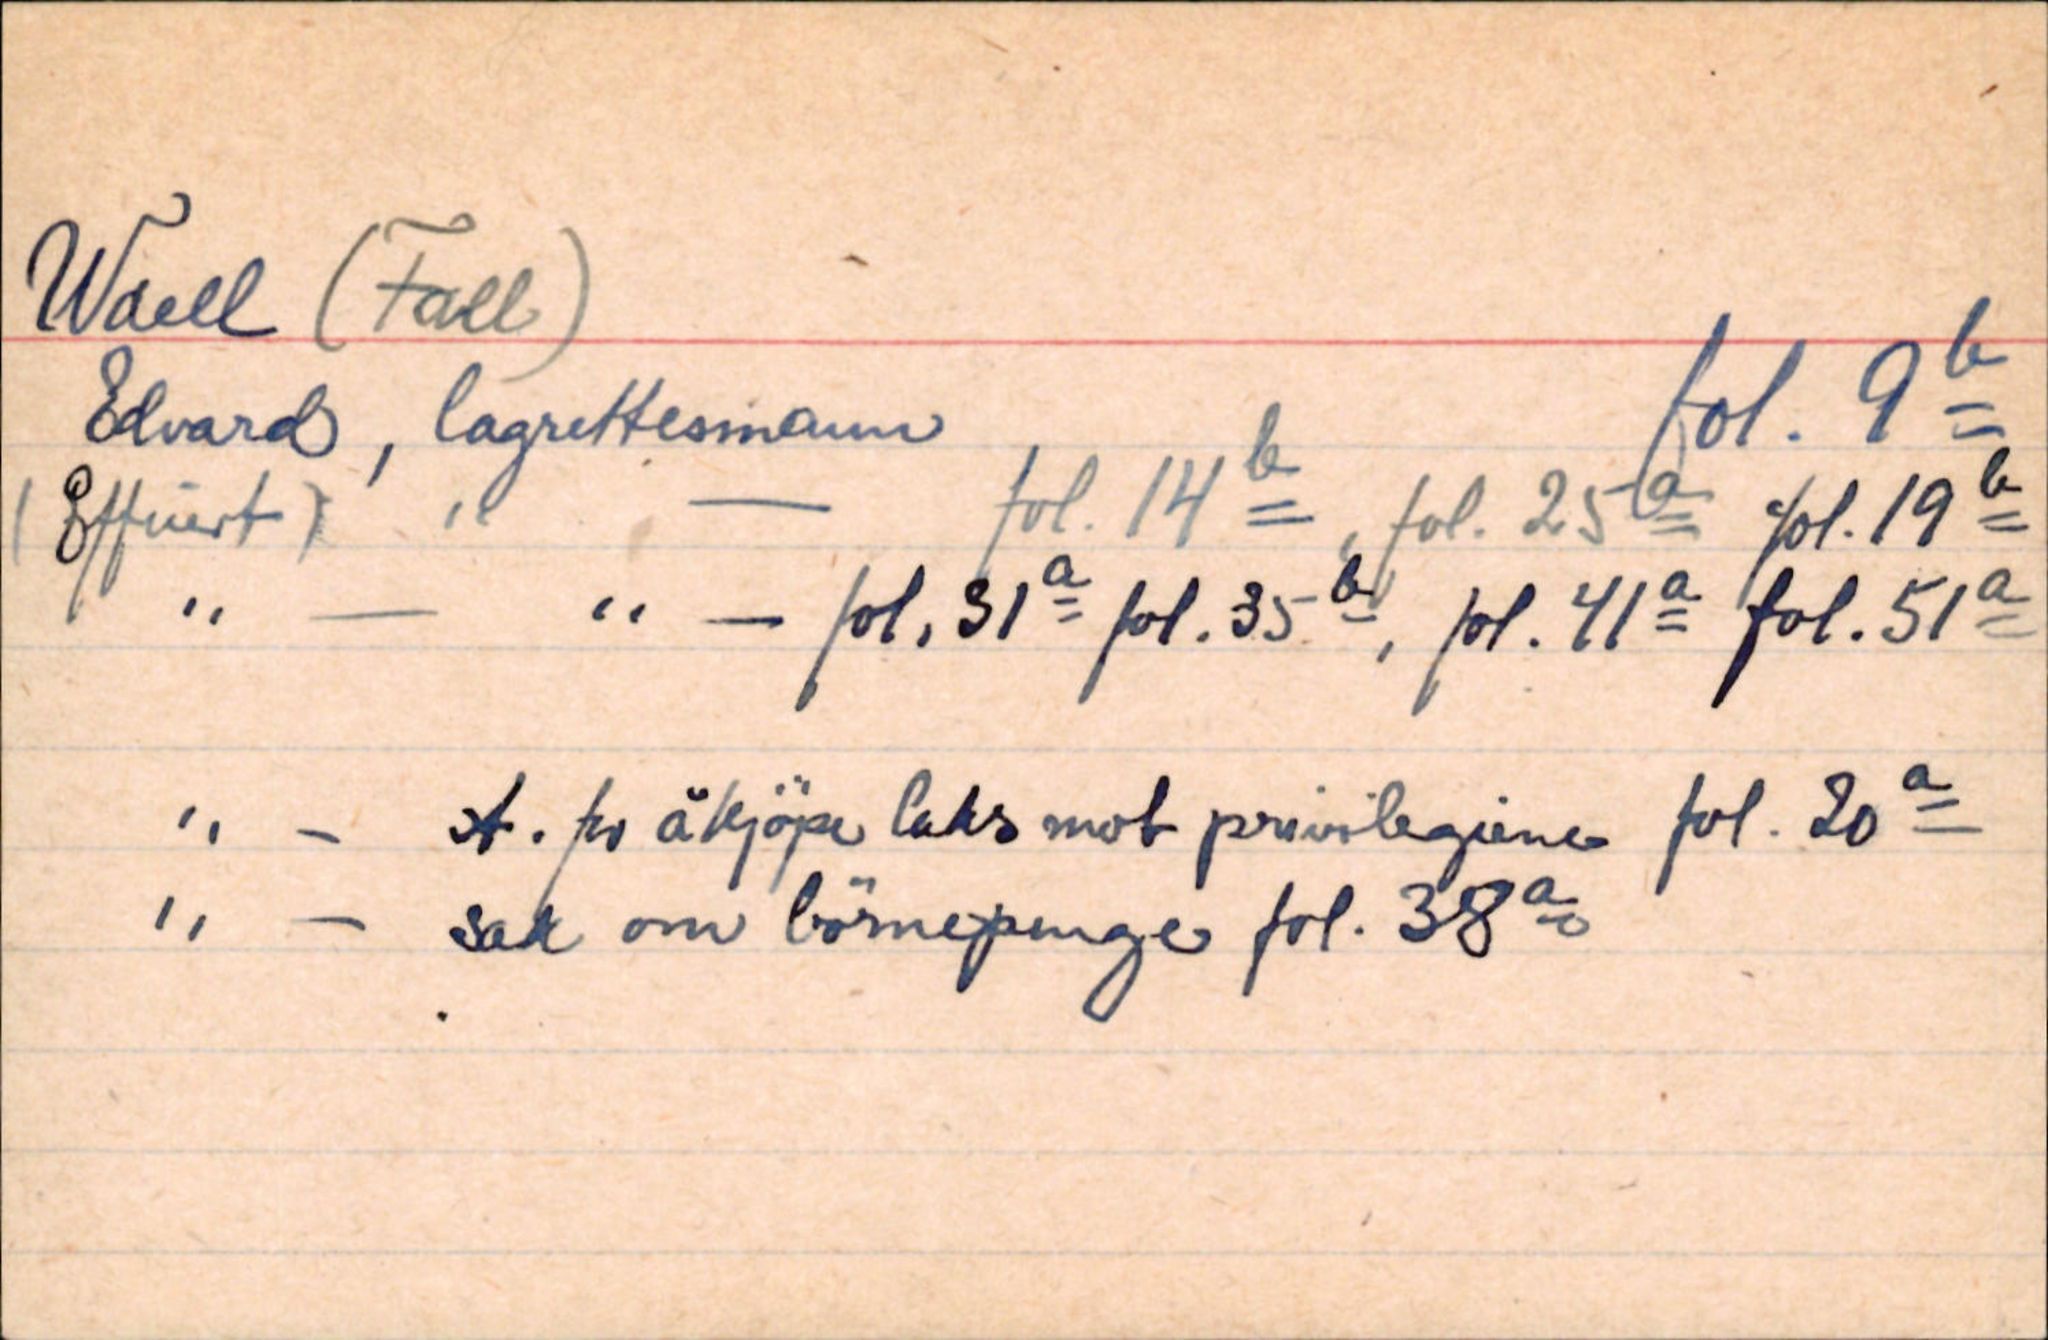 Waell (Fall)
Edvard, lagrettesmann fol. 9 b
(Effuert) " — fol. 14 b, fol. 25 a fol. 19 b
" — " — fol. 31 a fol. 35 b, fol. 41 a fol. 51 a
" — st. for å kjöpe laks mot privilegiene fol. 20 a
" — sak om börnepenge fol. 38 a